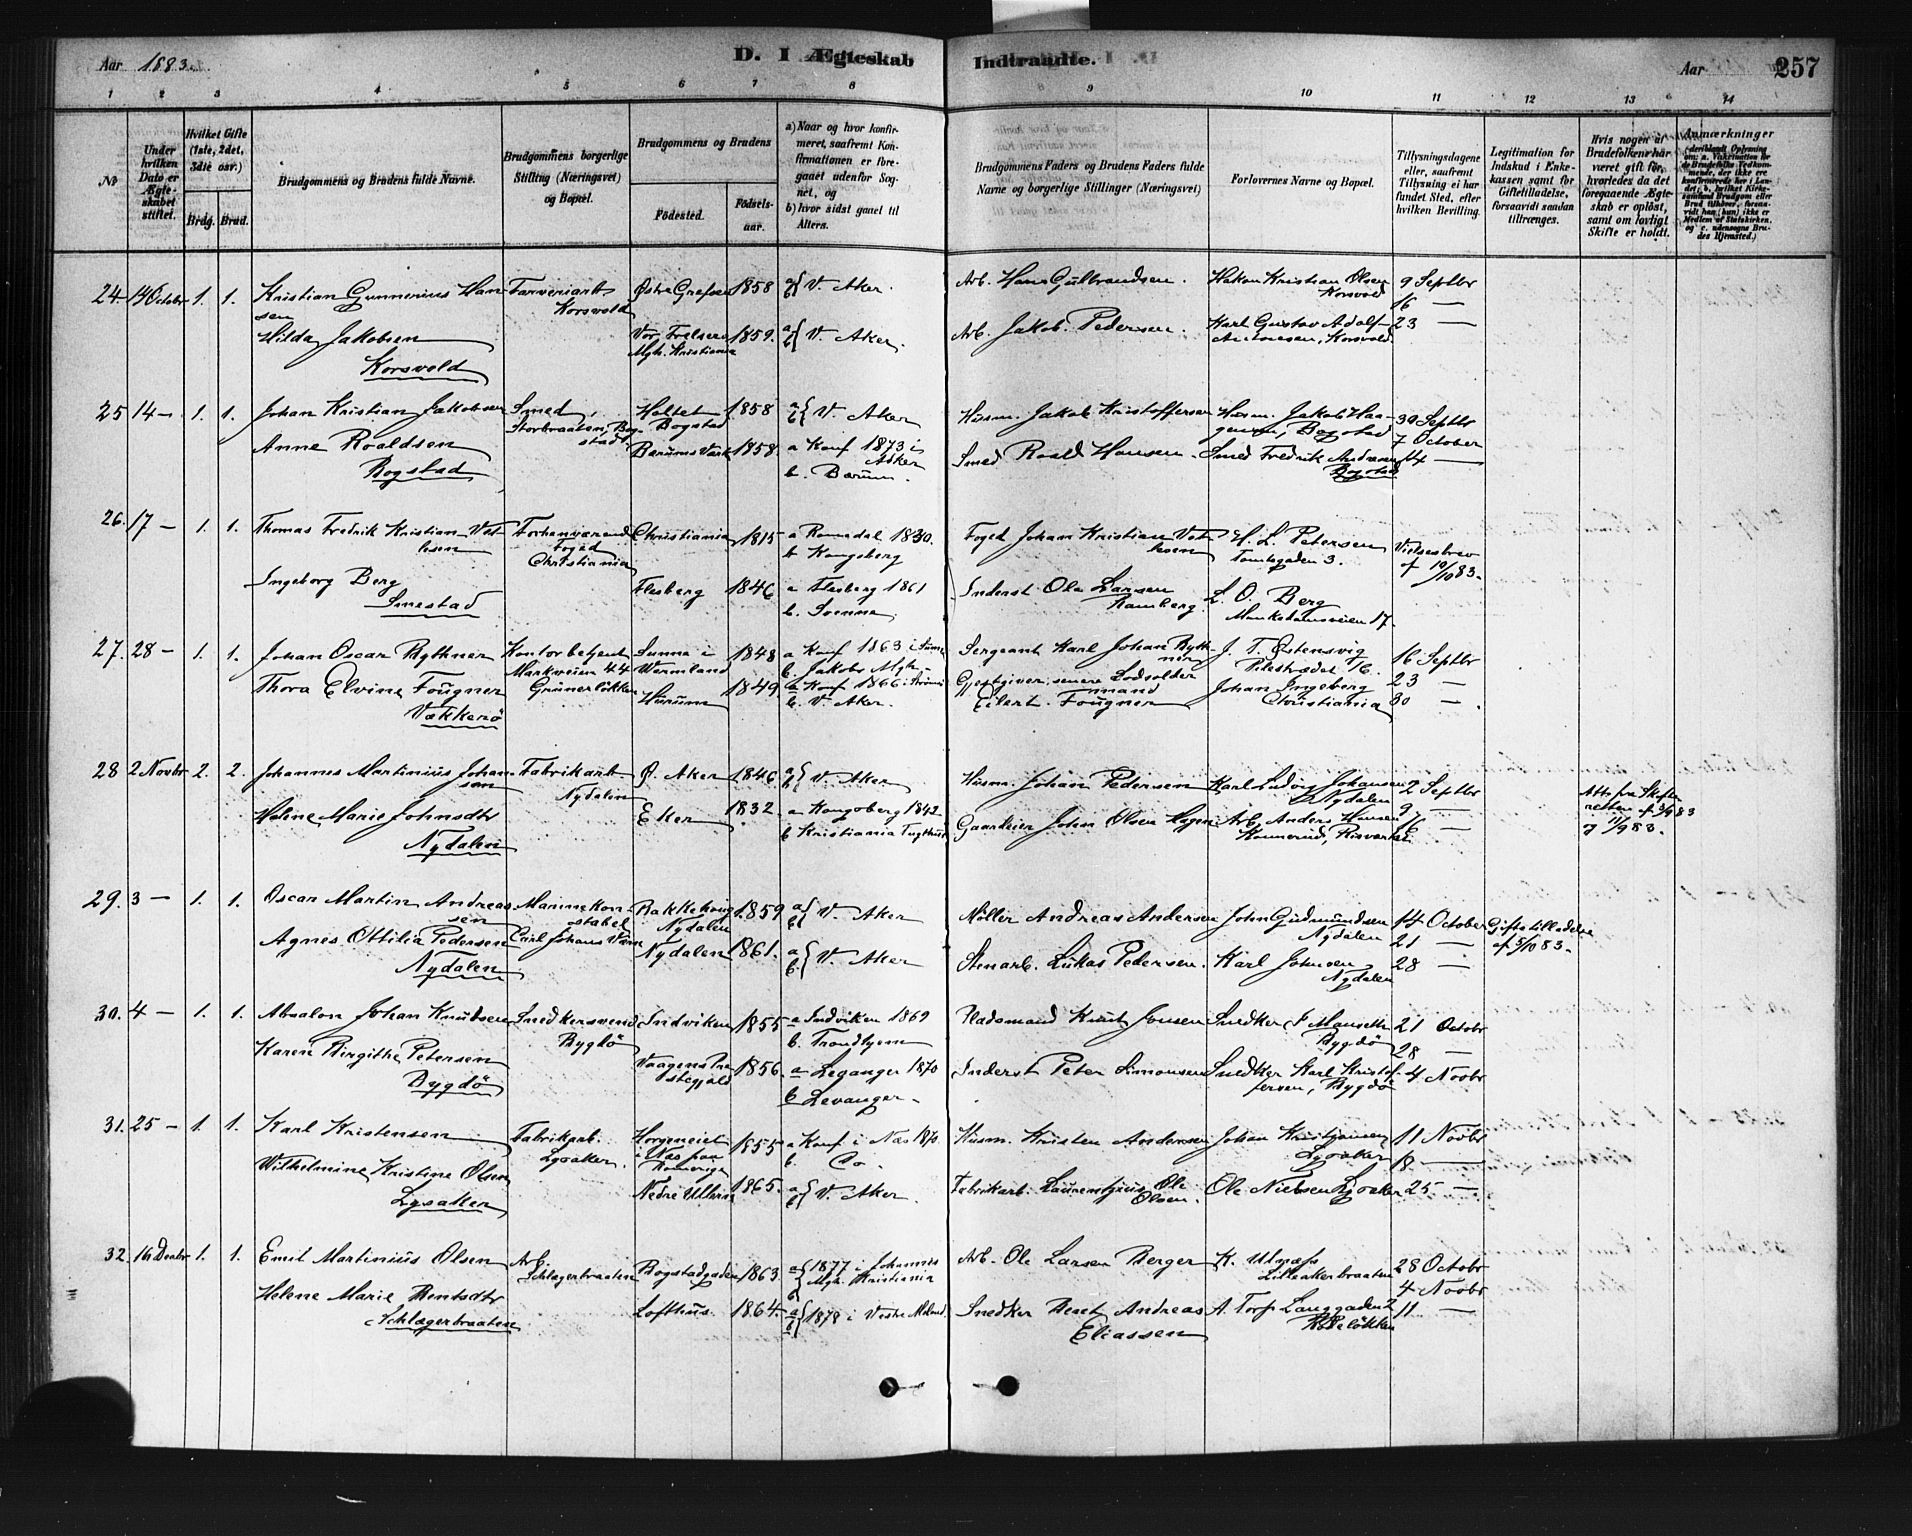 Aar 1883.
D. I Ægteskab Indtraadte.
Aar 257
1 2 3 4 5 6 7 8 9 10 11 12 13 14
No
Under hvilken Dato er Ægteskabet stiftet.
Hvilket Gifte (1ste, 2det, 3die osv.)
Brdg. Brud.
Brudgommens og Brudens fulde Navne.
Brudgommens borgerlige Stilling (Næringsvei) og Bopæl.
Brudgommens og Brudens
Födested. Födselsaar.
a) Naar og hvor konfirmeret, saafremt Konfirmationen er foregaaet udenfor Sognet, og
b) hvor sidst gaaet til Alters.
Brudgommens Faders og Brudens Faders fulde Navne og borgerlige Stillinger (Næringsvei)
Forlovernes Navne og Bopæl.
Tillysningsdagene eller, saafremt Tillysning ei har fundet Sted, efter hvilken Bevilling.
Legitimation for Indskud i Enkekassen samt for Giftetilladelse, forsaavidt saadan tiltrænges.
Hvis nogen af Brudefolkene har været gift för, hvorledes da det foregaaende Ægteskab er oplöst, samt om lovligt Skifte er holdt.
Anmærkninger
24 14 Octobr 1. 1. Kristian Gunnerius Hansen Farveriarb. Korsvold Østre Grefsen 1858 a b V. Aker. Arb. Hans Gulbrandsen. Hakon Kristian Olsen Korsvold 9 Septbr
16 —
Hilda Jakobsen Vor Frelsers Mgh. Kristiania 1859. a b V. Aker. Arb. Jakob Pedersen. Karl Gustav Adolf Antonesen, Korsvold 23 —
Korsvold
25 14 — 1. 1. Johan Kristian Jakobsen Smed, Storbraaten, Bogstad Holtet Bogstad 1858 a b V. Aker Husm. Jakob Kristoffersen Husm. Jakob Haagensen, Bogstad 30 Septbr
7 October
Anne Roaldsen Bærums Værk 1858. a Konf 1873 i Asker b. Bærum. Smed Roald Hansen. Smed Fredrik Andersen Bogstad 14 —
Bogstad
26. 17 — 1. 1. Thomas Fredrik Kristian Vethsen Forhenværende Foged Christiania Christiania 1815 a Romedal 1830. b Kongsberg Foged Johan Kristian Vethsen H. L. Petersen Tomtegaden 3. Vielsesbrev af 10/10 83.
Ingeborg Berg Flesberg 1846 a Flesberg 1861 b. Svenne. Inderst Ole Larsen Ramberg L. O. Berg Munkedamsveien 17.
Smestad
27. 28 — 1. 1. Johan Oscar Rythner Kontorbetjent Markveien 44 Grünerløkken Sunne i Wermland 1848 a Konf 1863 i Sunne b. Jakobs Mgh. Sergeant Karl Johan Rythner J. T. Østensvig Pilestrædet 16. 16 Septbr
23 —
Thora Elvine Fougner Hurum 1849 a Konf 1866 i b. V. Aker. Gjestgiver, senere Lodsoldermand Eilert Fougner Johan Ingeberg Christiania 30 —
Vækkerø
28 2 Novbr 2. 2. Johannes Martinius Johansen Fabrikarb Nydalen Ø. Aker 1846 a b V. Aker Husm. Johan Pedersen Karl Ludvig Johansen Nydalen 2 Septbr
9 —
Helene Marie Johnsdtr Eker 1832 a Kongsberg 1842 b Kristiania Tugthus Gaardeier John Olsen Hagen Arb. Anders Hansen 16 —
Att. fra Skifteretten af 3/9 83 & 11/9 83.
Nydalen
29. 3 — 1. 1. Oscar Martin Andreassen Marinekonstabel Carl Johans Værn Bakkehaug Nydalen 1859 a b V. Aker Møller Andreas Andersen John Gudmundsen Nydalen 14 October Giftetilladelse af 5/10 83.
21 —
Agnes Ottilia Pedersen Nydalen 1861. a b V. Aker Stenarb. Lukas Pedersen. Karl Johnsen Nydalen 28 —
Nydalen
30. 4 — 1. 1. Absalon Johan Knudsen Snedkersvend Bygdö Indviken 1855 a Indviken 1869 b. Trondhjem Pladsmand Knut Jonsen Snedker Bygdö 21 Octobr
28 —
Karen Birgithe Petersen Vaagens Præstegjæld 1856. a Leganger 1870 b Levanger. Inderst Peter Simonsen Snedker Karl Kristoffersen, Bygdö 4 Novbr
Bygdö
31. 25 — 1. 1. Karl Kristensen Fabrikarb. Lysaker. Horgeneiet i Næs paa Romerige 1855 a Konf i Næs 1870. b. Do. Husm. Kristen Andersen Johan Kristjansen Lysaker 11 Novbr
18 —
Wilhelmine Kristine Olsen Nedre Ullern 1865. a b V. Aker. Fabrikarb. Laurentzius Ole Olsen. Ole Nielsen Lysaker 25 —
Lysaker
32. 16 Decbr 1. 1. Emil Martinius Olsen Arb. Schlagerbraaten Bogstadgaden 1863. a 1877 i Johannis Mgh. Kristiania Arb. Ole Larsen Berger K. Ulnæss Lilleakerbraaten 28 Octobr
4 Novbr
Helene Marie Berntsdtr Lofthus. 1864. a b 1878 i Vestre Aker Snedker Bernt Andreas Eliassen A. Torp Langgaden 2 Pibeløkken 11 —
Schlagerbraaten